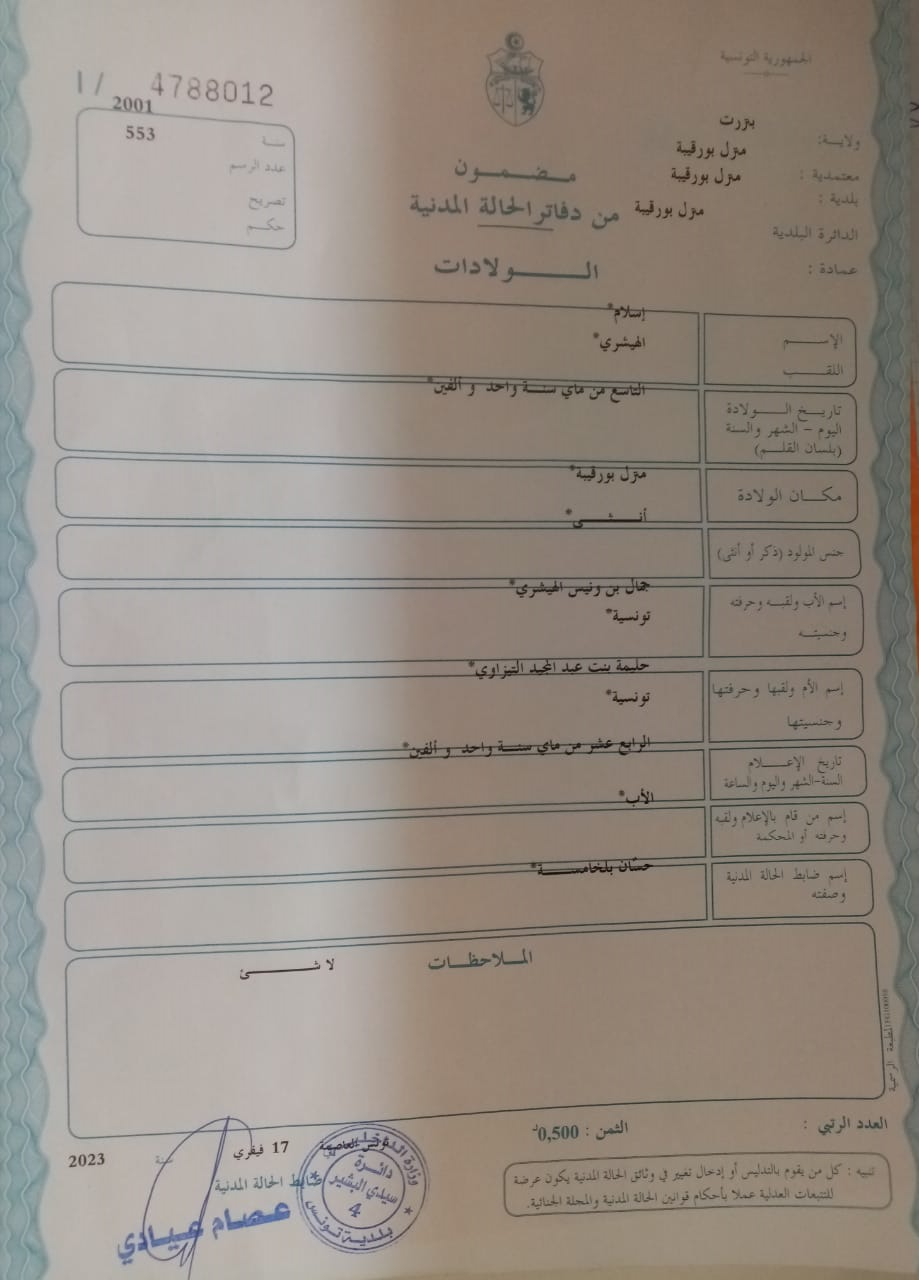 الجمهورية التونسية
I / 4788012
2001
سنة
553
عدد الرسم
تصريح
حكم
ولاية: بنزرت
معتمدية : منزل بورقيبة
بلدية : منزل بورقيبة
الدائرة البلدية منزل بورقيبة
عمادة :
مضمون
من دفاتر الحالة المدنية
الولادات
الإسم إسلام*
اللقب الهيشري*
تاريخ الولادة
اليوم - الشهر والسنة
(بلسان القلم)
التاسع من ماي سنة واحد و ألفين*
مكان الولادة منزل بورقيبة*
جنس المولود (ذكر أو أنثى) أنثى*
إسم الأب ولقبه وحرفته
وجنسيته
جمال بن ونيس الهيشري*
تونسية*
إسم الأم ولقبها وحرفتها
وجنسيتها
حليمة بنت عبد المجيد التيزاوي*
تونسية*
تاريخ الإعلام
السنة-الشهر واليوم والساعة
الرابع عشر من ماي سنة واحد و ألفين*
إسم من قام بالإعلام ولقبه
وحرفته أو المحكمة
الأب*
إسم ضابط الحالة المدنية
وصفته
حسّان بلخامسة*
الملاحظات
لا شئ
المطبعة الرسمية
العدد الرتبي :
الثمن : 0,500د
تنبيه : كل من يقوم بالتدليس أو إدخال تغيير في وثائق الحالة المدنية يكون عرضة
للتتبعات العدلية عملا بأحكام قوانين الحالة المدنية والمجلة الجنائية.
تونس العاصمة 17 فيفري سنة 2023
ضابط الحالة المدنية
عصام عيادي
وزارة الداخلية
دائرة
سيدي البشير
4
بلدية تونس